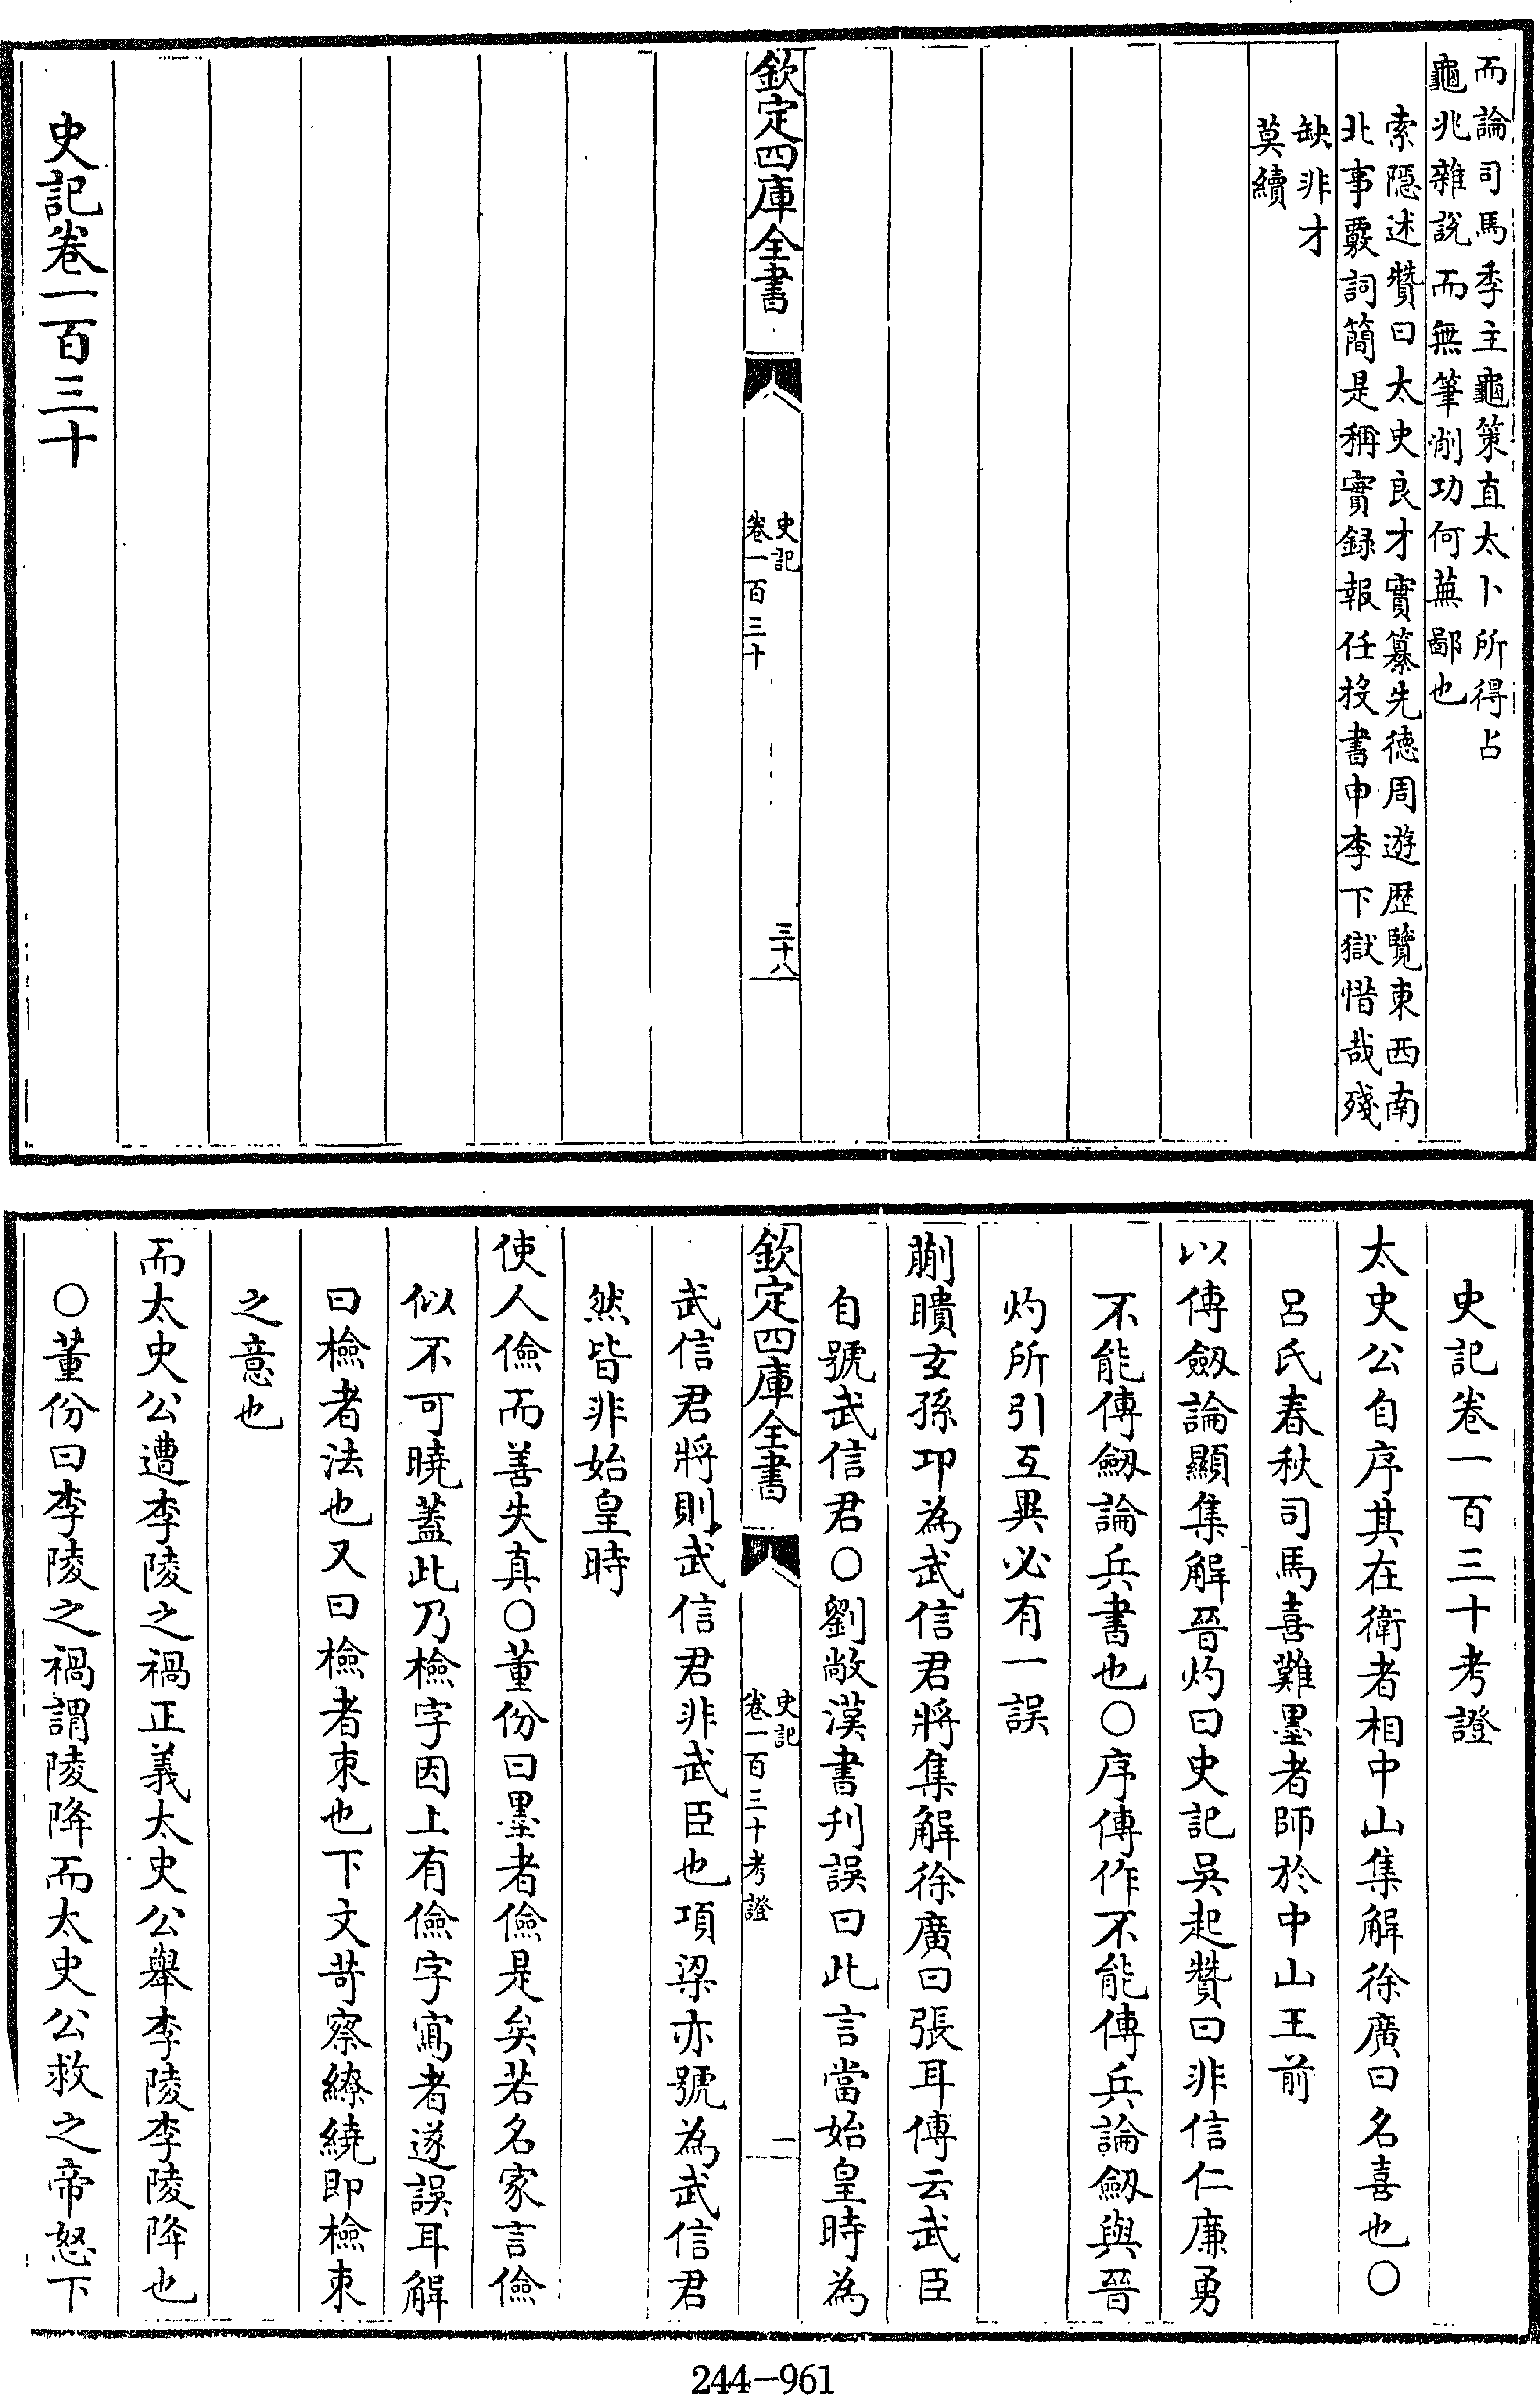 而論司馬季主龜策直太卜所得占
龜兆雜說而無筆削功何蕪鄙也
索隱述贊曰太史良才實纂先德周遊歴覽東西南
北事覈詞簡是稱實録報任投書申李下獄惜哉殘
缺非才
莫續
欽定四庫全書
史記
卷一百三十
三十八
史記卷一百三十
史記卷一百三十考證
太史公自序其在衛者相中山集解徐廣曰名喜也○
呂氏春秋司馬喜難墨者師於中山王前
以傳劔論顯集解晉灼曰史記吳起贊曰非信仁廉勇
不能傳劔論兵書也○序傳作不能傳兵論劔與晉
灼所引互異必有一誤
蒯聵玄孫卬為武信君將集解徐廣曰張耳傳云武臣
自號武信君○劉敞漢書刋誤曰此言當始皇時為
欽定四庫全書
史記
卷一百三十考證
一
武信君將則武信君非武臣也項梁亦號為武信君
然皆非始皇時
使人儉而善失真○董份曰墨者儉是矣若名家言儉
似不可曉蓋此乃檢字因上有儉字寫者遂誤耳解
曰檢者法也又曰檢者束也下文苛察繚繞即檢束
之意也
而太史公遭李陵之禍正義太史公舉李陵李陵降也
○董份曰李陵之禍謂陵降而太史公救之帝怒下
244-961